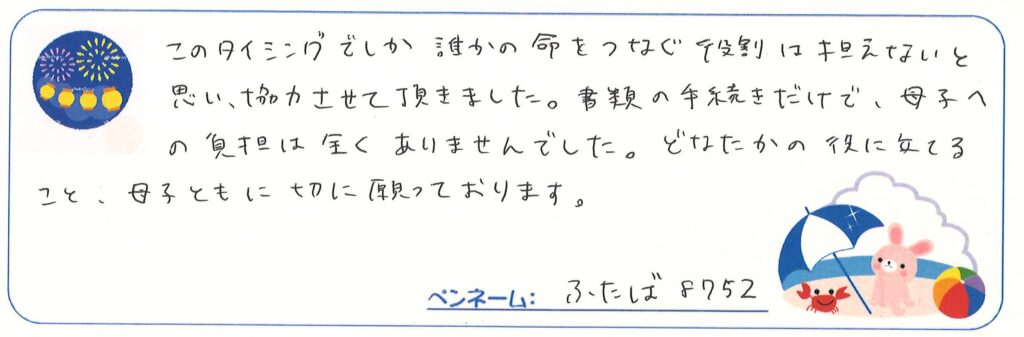 このタイミングでしか 誰かの命をつなぐ役割は担えないと
思い、協力させて頂きました。書類の手続きだけで、母子へ
の負担は全くありませんでした。どなたかの役に立てる
こと、母子ともに切に願っております。
ペンネーム: ふたば8752